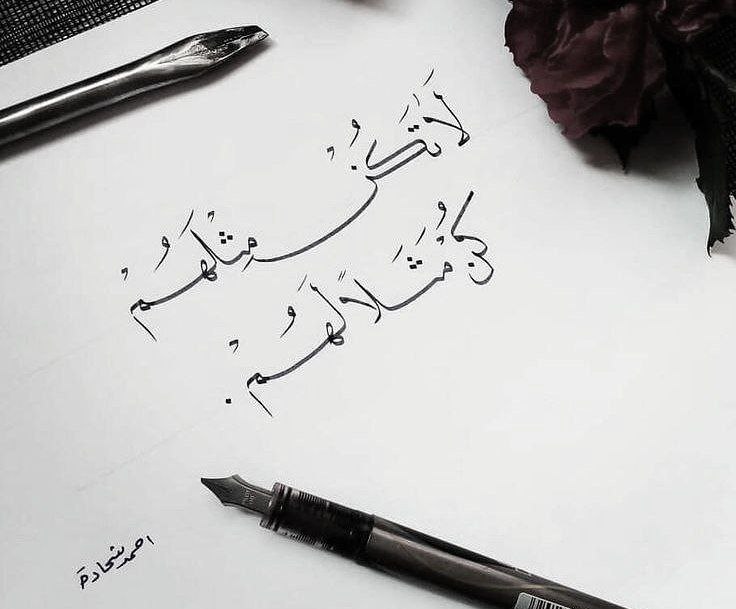 لَا تَكُنْ مِثْلَهُمْ
كُنْ مَثَلًا لَهُمْ.
احمد شحادة